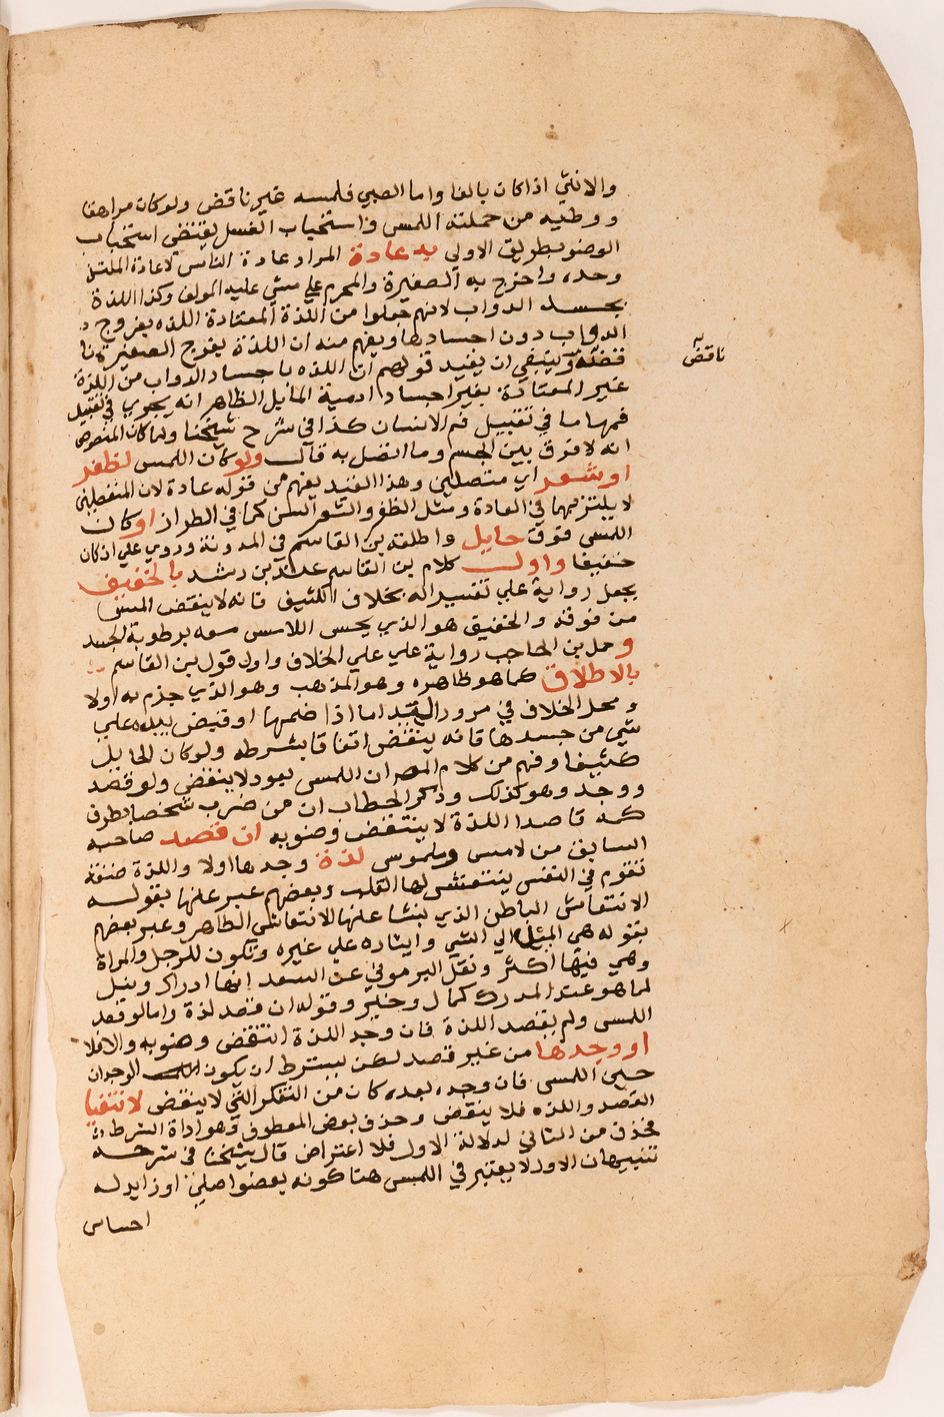 والانثي اذا كان بالغا واما الصبي فلمسه غير ناقض ولو كان مراهقا
ووطيه من جملته اللمس واستحباب الغسل يقتضي استحباب
الوضو بطريق الاولي به عادة المراد عادة الناس لا عادة الملتذ
وحده واخرج به الصغيرة والمحرم علي ما مشي عليه المولف وكذا اللذة
بجسد الدواب لانهم جعلوا من اللذة المعتادة اللذه بفروج
الدواب دون اجسادها ويفهم منه ان اللذة بفرج الصغيرة نا
قضة وينبغي ان يقيد قولهم ان اللذه باجساد الدواب من اللذة
ناقض
غير المعتادة بغير اجساد ادمية الما الظاهر انه يجري في تقبيل
فمها ما في تقبيل فم الانسان كذا في شرح شيخنا ولما كان المنصوص
انه لا فرق بين الجسم وما اتصل به قال ولو كان اللمس لظفر
او شعر اي متصلين وهذا القيد يفهم من قوله عادة لان المنفصلين
لا يلتذ بهما في العادة ومثل الظفر والشعر السن كما في الطراز او كان
اللمس فوق حايل واطلقه بن القاسم في المدونة وروي علي ان كان
خفيفا واول كلام بن القاسم عند بن رشد بالخفيف
بجعل رواية علي تفسيرا له بخلاف الكثيف فانه لا ينقض المس
من فوقه والخفيف هو الذي يحس اللامس معه برطوبة الجسد
وحمل بن الحاجب رواية علي علي الخلاف واول قول بن القاسم
بالاطلاق كما هو ظاهره وهو المذهب وهو الذي جزم به اولا
ومحل الخلاف في مرور اليد اما اذا ضمها او قبض بيده علي
شي من جسدها فانه ينقض اتفاقا بشرطه ولو كان الحايل
كثيفا وفهم من كلام المص ان اللمس بعود لا ينقض ولو قصد
ووجد وهو كذلك وذكر الحطاب ان من ضرب شخصا بطرف
كمه قاصدا اللذة لا ينتقض وضوءه ان قصد صاحبه
السابق من لامس وملموس لذة وجدها اولا واللذة صفة
تقوم في النفس ينتعش لها القلب وبعضهم عبر عنها بقوله
الانتعاش الباطن الذي ينشا عنها الانتعاش الظاهر وعبر بعضهم
بقوله هي الميل الي الشي وايثاره علي غيره وتكون للرجل والمراة
وهي فيها اكثر ونقل البرموني عن السعد انها ادراك ونيل
لما هو عند المدرك كمال وخير وقوله ان قصد لذة واما لو قصد
اللمس ولم يقصد اللذة فان وجد اللذة انتقض وضوءه والا فلا
او وجدها من غير قصد لكن يشترط ان يكون الوجدان
حين اللمس فان وجد بعده كان من التفكر التي لا ينقض لا انتفيا
القصد واللذه فلا ينقض وحذف بعض المعطوف وهو اداة الشرط
فحذف من الثاني لدلالة الاول فلا اعتراض قال شيخنا في شرحه
تنبيهان الاول لا يعتبر في اللمس هنا كونه بعضو اصلي او زايد له
احساس